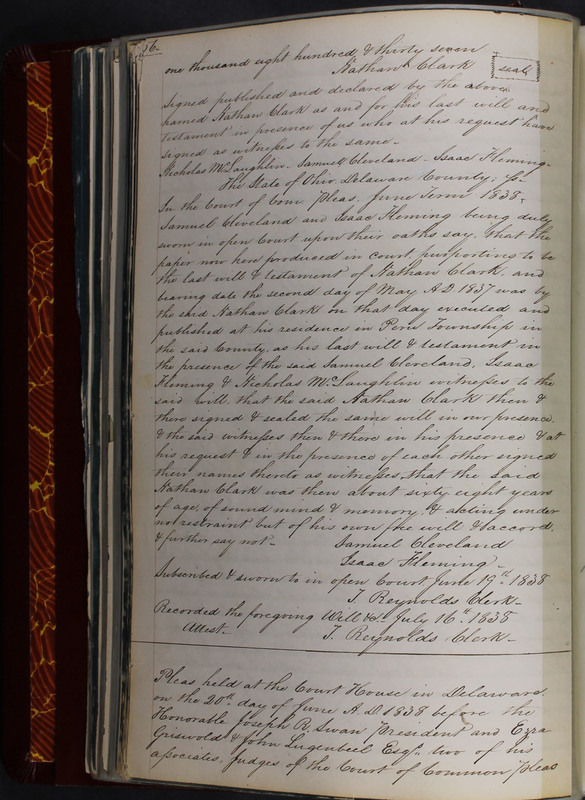 36.
one thousand eight hundred & thirty seven
Nathan Clark seal
Signed published and declared by the above
named Nathan Clark as and for his last will and
testament in presence of us who at his request have
signed as witnesses to the same.
Nicholas McLaughlin. Samuel Cleveland. Isaac Fleming.
The State of Ohio. Delaware County, ss-
In the Court of Com. Pleas. June Term 1838.
Samuel Cleveland and Isaac Fleming being duly
sworn in open Court upon their oaths say, that the
paper now here produced in court, purporting to be
the last will & testament of Nathan Clark, and
bearing date the second day of May A.D 1837 was by
the said Nathan Clark on that day executed and
published at his residence in Peru Township in
the said County, as his last will & testament in
the presence of the said Samuel Cleveland, Isaac
Fleming & Nicholas McLaughlin witnesses to the
said will, that the said Nathan Clark then &
there signed & sealed the same will in our presence,
& the said witnesses then & there in his presence & at
his request & in the presence of each other signed
their names thereto as witnesses, that the said
Nathan Clark was then about sixty eight years
of age, of sound mind & memory, & acting under
no restraint but of his own free will & accord,
& further say not-
Samuel Cleveland
Isaac Fleming
Subscribed & sworn to in open Court June 19th 1838
T. Reynolds Clerk-
Recorded the foregoing Will &c. July 16th 1838
Attest- T. Reynolds Clerk-
Pleas held at the Court House in Delaware
on the 20th day of June A.D. 1838 before the
Honorable Joseph R. Swan President and Ezra
Griswold & John Lugenbeel Esqrs. two of his
associates, judges of the Court of Common Pleas